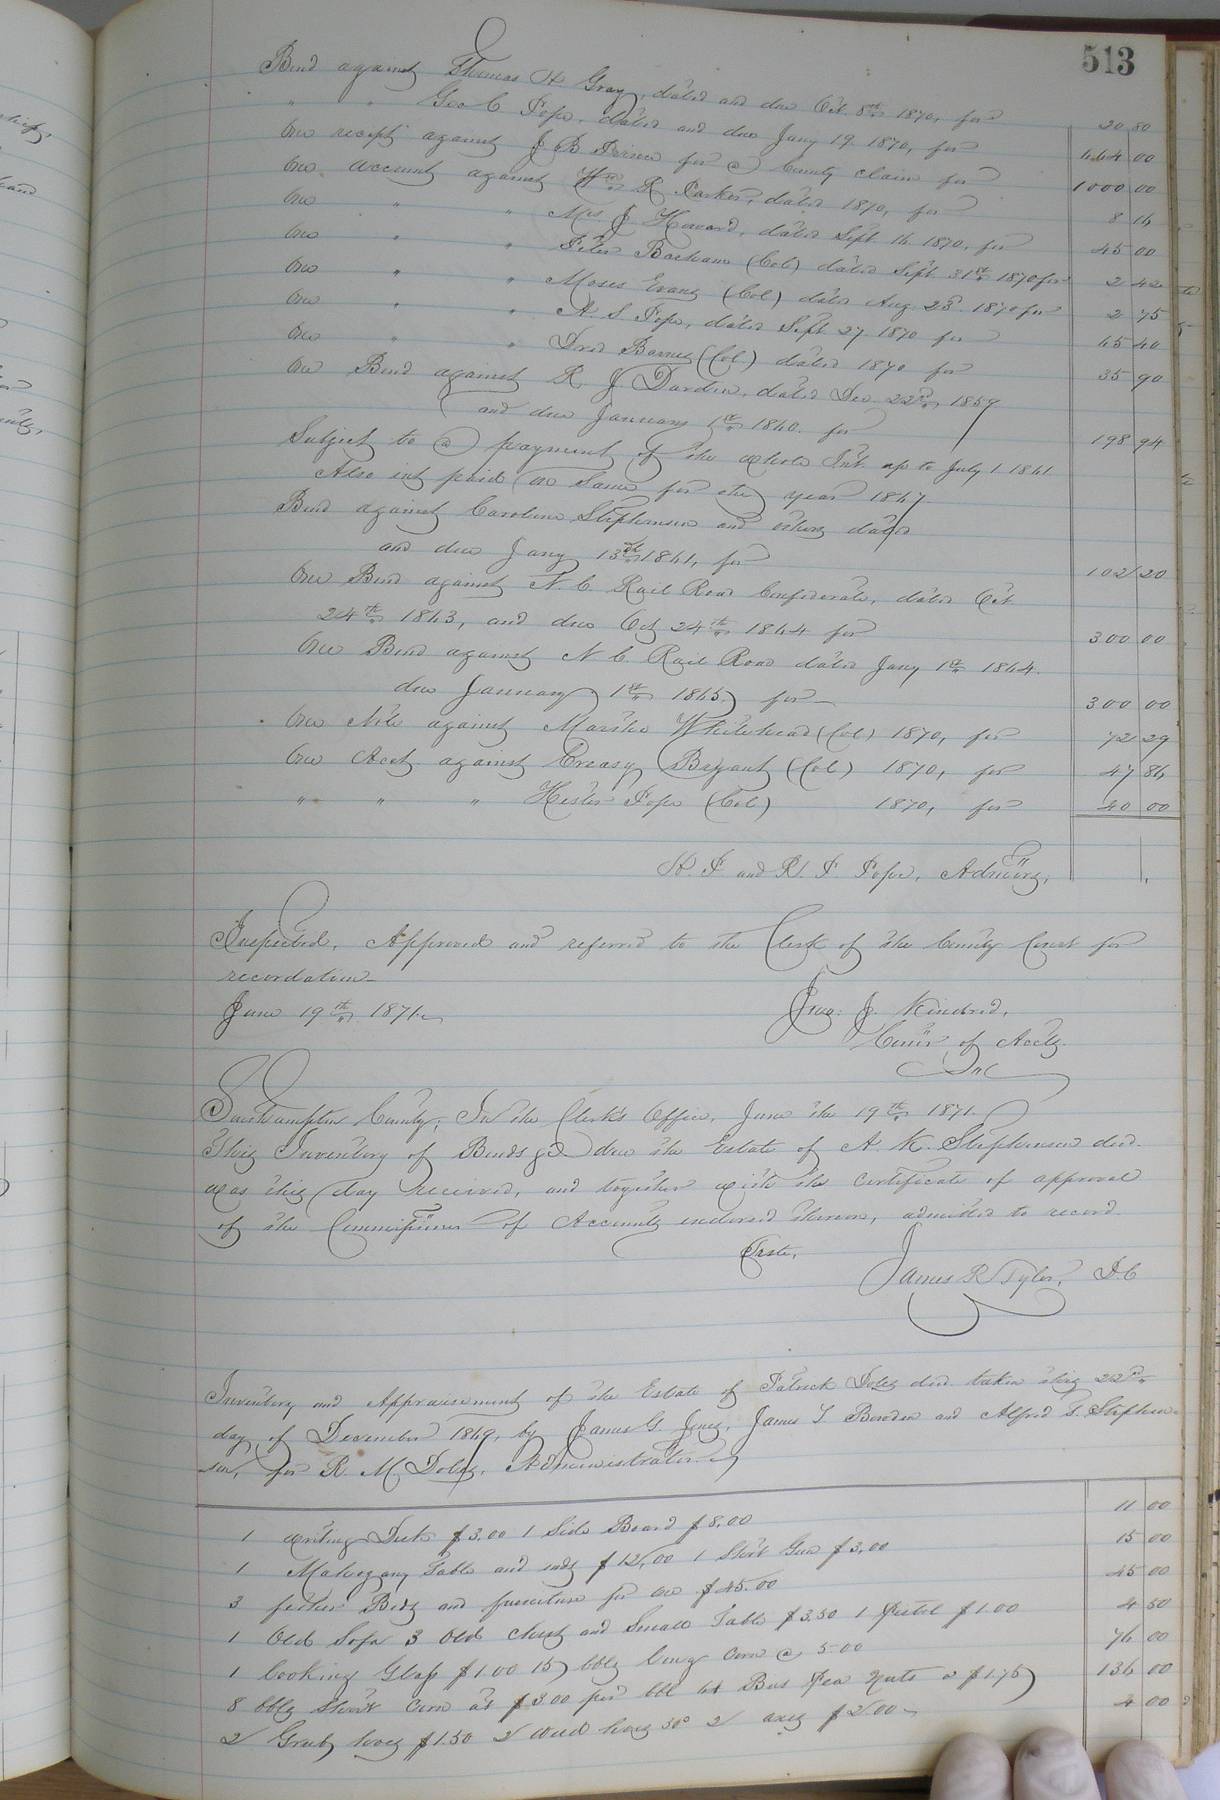 513
Bond against Thomas H Gray, dated and due Oct. 8th 1870, for 20 80
" " Geo C Pope, dated and due Jany 19. 1870, for 664 00
One receipt against J B Prince for a County claim for 1000 00
One account against Wm R Parker, dated 1870, for 8 16
One " " Mrs J. Howard, dated Sept. 16. 1870, for 45 00
One " " Peter Barham (Col) dated Sept. 31st 1870 for 2 42
One " " Moses Evans (Col) dated Aug. 23d. 1870 for 2 75
One " " A. S. Pope, dated Sept 27. 1870 for 65 40
One " " Dred Barnes (Col) dated 1870 for 35 90
One Bond against R J. Darden, dated Dec. 22nd, 1859
and due January 1st 1860. for 198 94
Subject to a payment of the whole Int. up to July 1. 1861
Also int paid on same for the year 1867
Bond against Caroline Stephenson and others dated
and due Jany 13th 1861, for 102 20
One Bond against N. C. Rail Road Confederate, dated Oct
24th 1863, and due Oct 24th 1864 for 300 00
One Bond against N C. Rail Road dated Jany 1st 1864.
due January 1st 1865, for 300 00
One Note against Whitehead (Col) 1870, for 72 29
One Acct against Creasy Bryant (Col) 1870, for 47 86
" " " Hester Pope (Col) 1870, for 40 00
H. P and R. P. Pope, Admors,
Inspected, Approved and referred to the Clerk of the County Court for
recordation
June 19th 1871.
Jno: J. Kindred,
Comr of Accts.
Southampton County; In the Clerk's Office, June the 19th 1871.
This Inventory of Bonds &c due the Estate of A. K. Stephenson decd.
was this day received, and together with the certificate of approval
of the Commissioner of Accounts endorsed thereon, admitted to record.
Teste,
James R Tyler, D.C
Inventory and Appraisement of the Estate of Patrick Doles decd. taken this 22nd
day of December 1869, by James G. Jones, James T Bowden and Alfred T. Stephen-
son, for R. M. Doles, Administrator
1 writing Desk $3.00 1 Side Board $8.00 11 00
1 Mahogany Table and ends $12.00 1 Shot Gun $3.00 15 00
3 feather Beds and furniture for one $45.00 45 00
1 Old Sofa 3 Old chests and Small Table $3.50 1 Pistol $1.00 4 50
1 Looking Glass $1.00 15 bbls long corn @ 5.00 76 00
8 bbls short corn at $3.00 per bbl 64 Bus Pea Nuts @ $1.75 136 00
2 Grub hoes $1.50 2 weed hoes 50c 2 axes $2.00 4 00